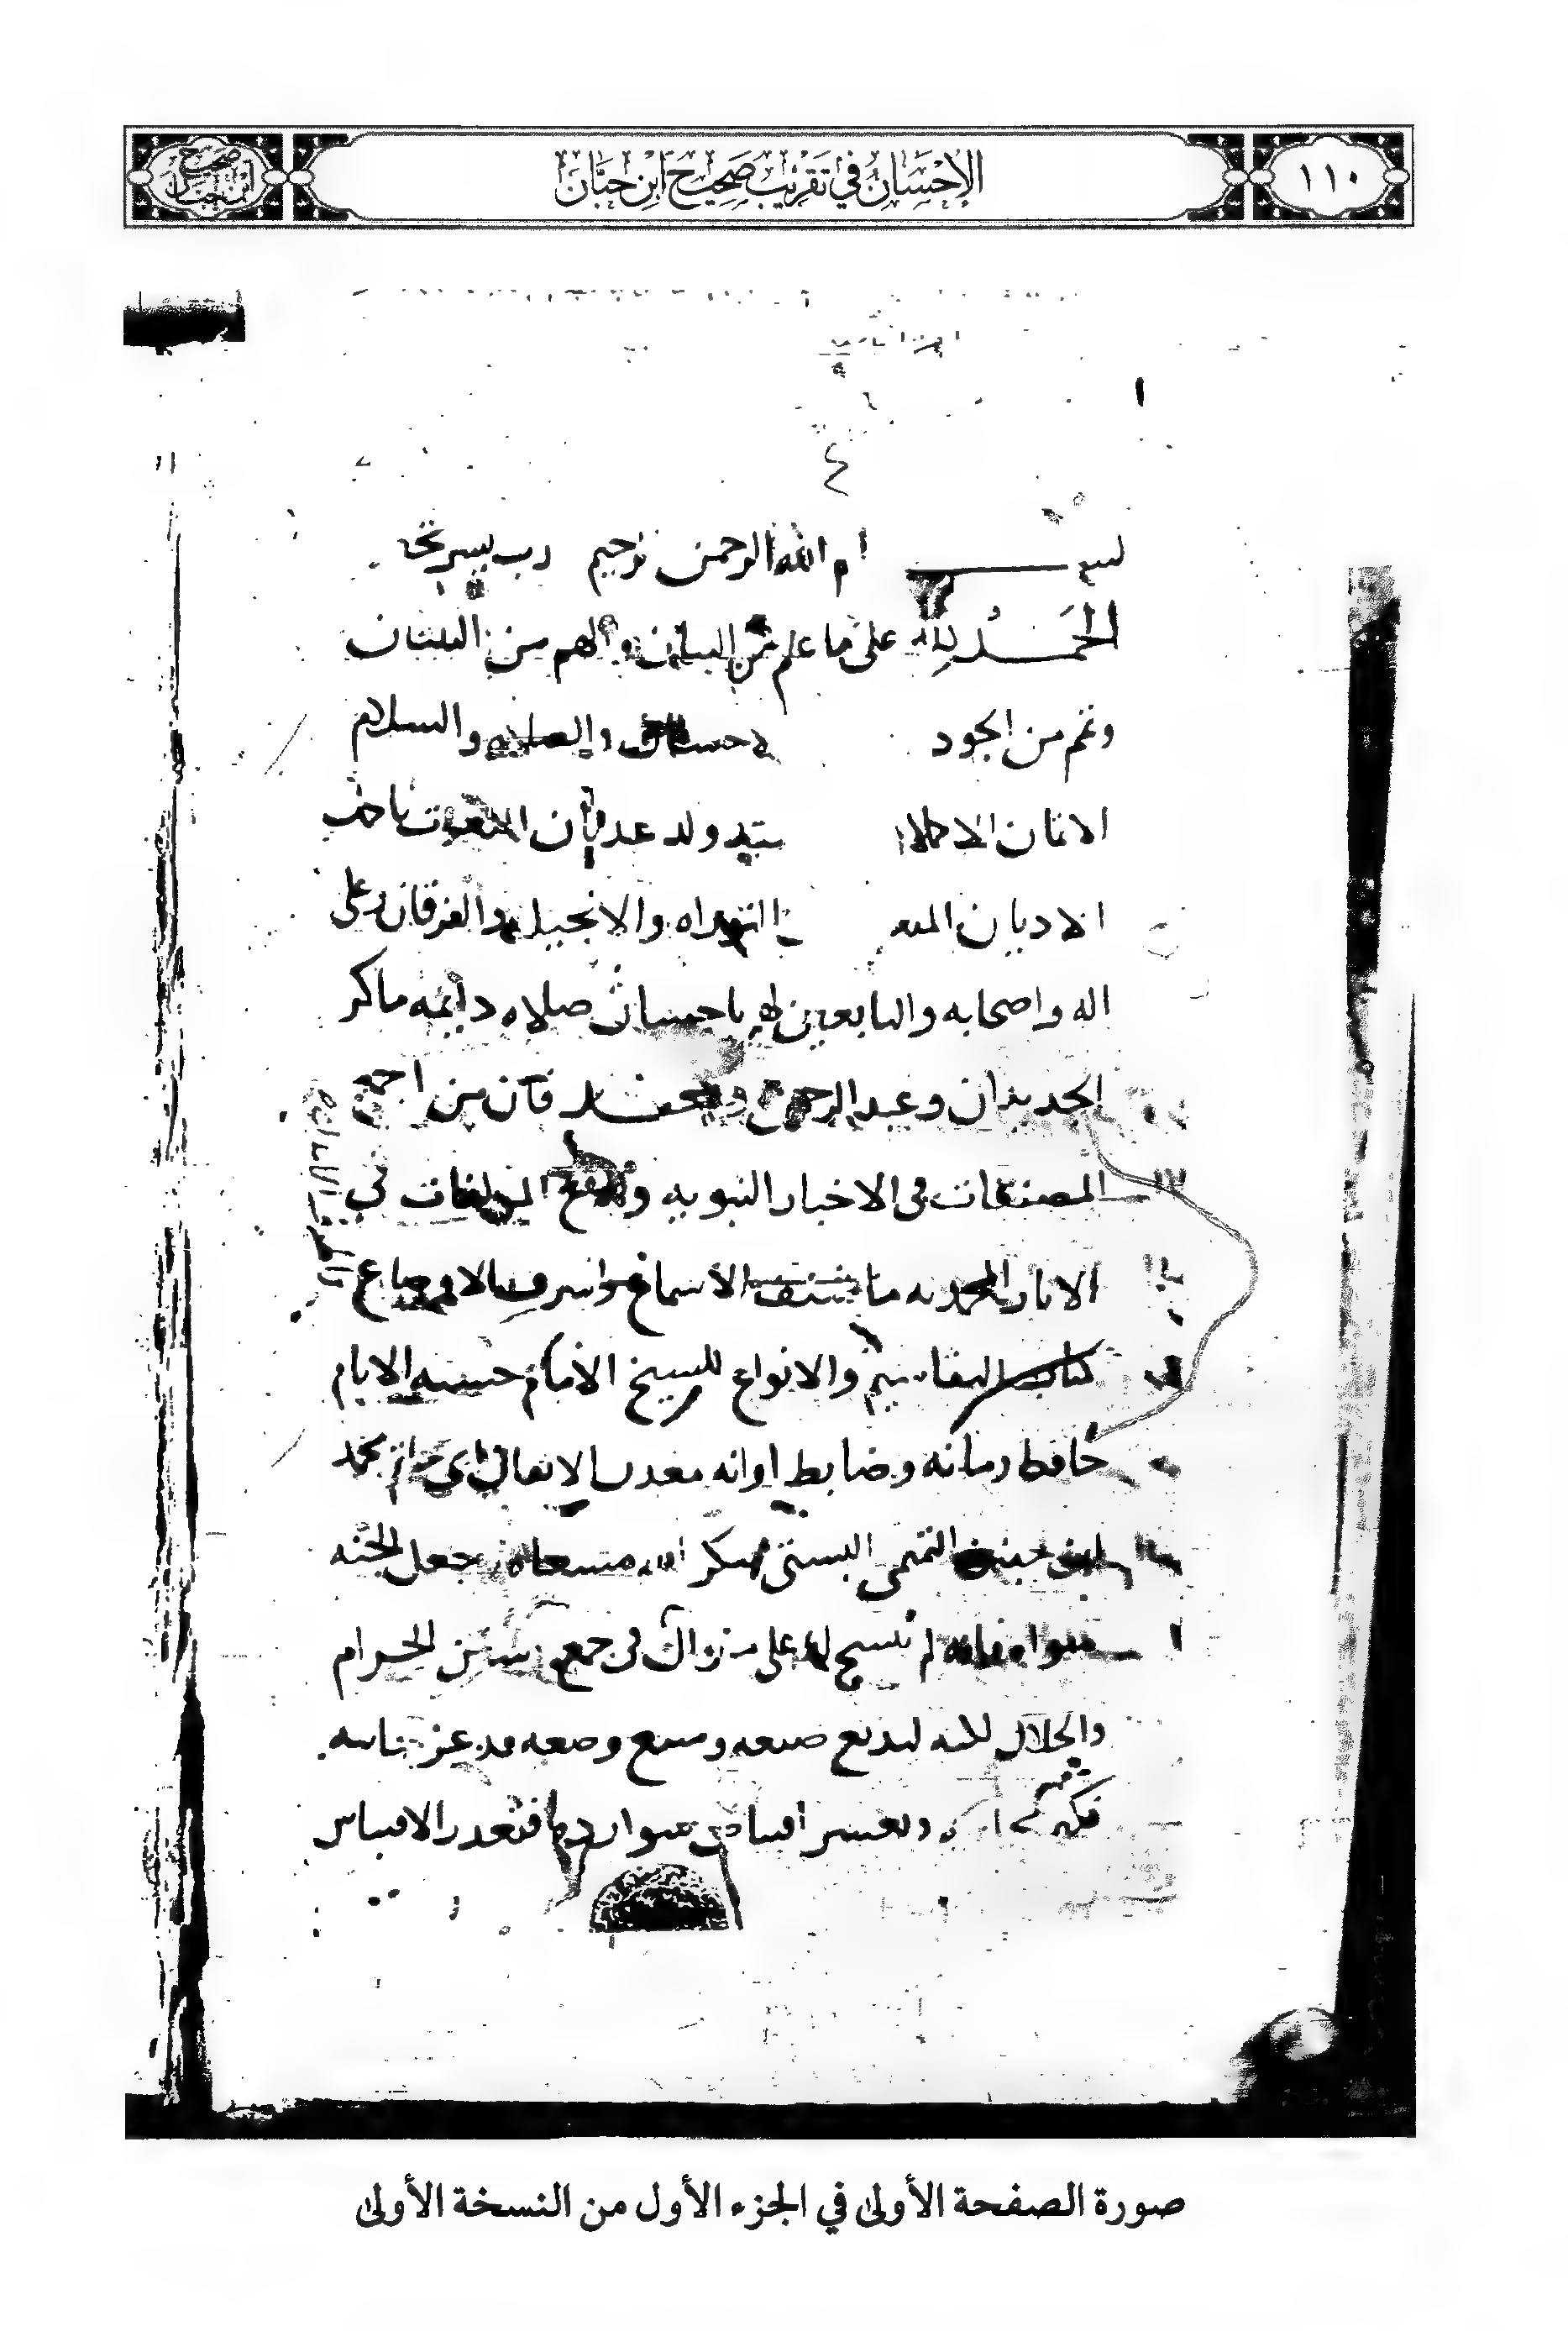 ١١٠
الإحسان في تقريب صحيح ابن حبان
صحيح ابن حبان
٤
بسم الله الرحمن الرحيم رب يسر
الحمد لله على ما علم من البيان والهم من التبيان
وتمم من الجود والصلاه والسلام
سيد ولد عدنان المنعوت
الاديان التوراه والانجيل والفرقان وعلى
اله واصحابه والتابعين لهم باحسان صلاه دايمه ما كر
الجديدان وعبد الرحمن فان من اجمع
المصنفات في الاخبار النبويه وانفع المولفات في
الاثار المحمديه الاسماع
كتاب التقاسيم والانواع للشيخ الامام حسنه الايام
حافظ زمانه وضابط اوانه معدن الاتقان ابي حاتم محمد
ابن حبان التميمي البستي شكر الله مسعاه وجعل الجنه
مثواه فانه لم ينسج له على منوال في جمع سنن الحرام
والحلال لكنه لبديع صنعه ومنيع وضعه قد عز جانبه
فكثر وتعسر اقتناص شوارده فتعذر الاقتباس
صورة الصفحة الأولى في الجزء الأول من النسخة الأولى